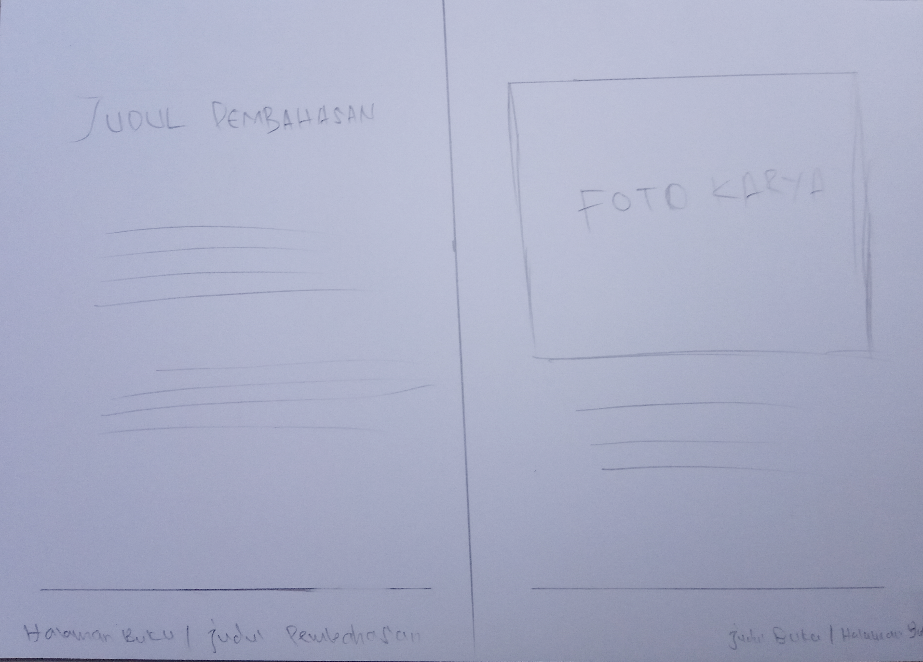 JUDUL PEMBAHASAN
Halaman Buku / judul Pembahasan
FOTO KARYA
Judul Buku / Halaman